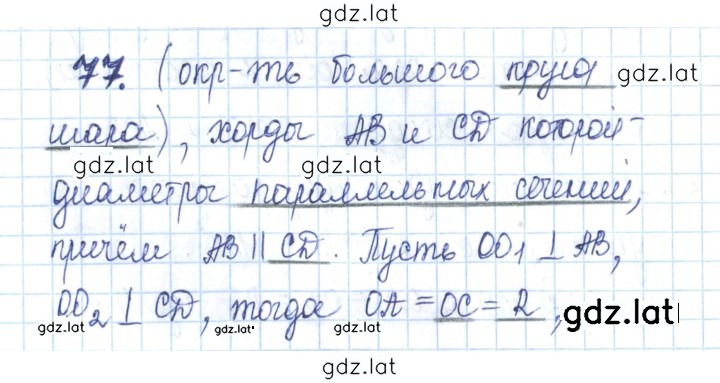 gdz.lat
77. (окр-ть большого круга gdz.lat
шара), хорды AB и CD которой -
gdz.lat gdz.lat
диаметры параллельных сечений,
gdz.lat gdz.lat
причём AB || CD. Пусть OO₁ ⊥ AB,
OO₂ ⊥ CD, тогда OA = OC = R, gdz.lat
gdz.lat gdz.lat gdz.lat
gdz.lat